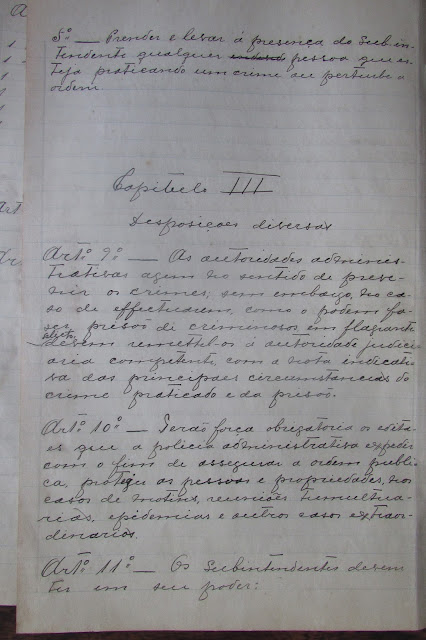 5º — Prender e levar á presença do Subin-
tendente qualquer pessoa que es-
teja praticando um crime ou perturbe a
ordem.
Capitulo III
Desposições diversas
Artº 9º — As autoridades adminis-
trativas agem no sentido de preve-
nir os crimes; sem embargo, no ca-
so de effectuarem, como o podem fa-
zer, prisão de criminosos em flagrante
delicto, devem remettel-os á autoridade judici-
aria competente, com a nota indicati-
va das principaes circumstancias do
crime praticado e da prisão.
Artº 10º — Terão força obrigatoria os edita-
es que a policia administrativa expedir
com o fim de assegurar a ordem publi-
ca, proteger as pessoas e propriedades, nos
casos de motins, reuniões tumultua-
rias, epidemias e outros casos extraor-
dinarios.
Artº 11º — Os Subintendentes devem
ter em seu poder: